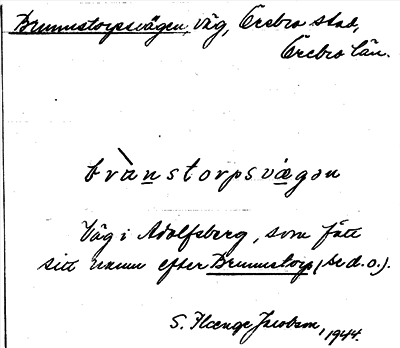 Brunnstorpsvägen, väg, Örebro stad,
Örebro län.
brùnstorpsvægən
Väg i Adolfsberg, som fått
sitt namn efter Brunnstorp, (se d. o.).
S. Hænge Jacobson, 1944.